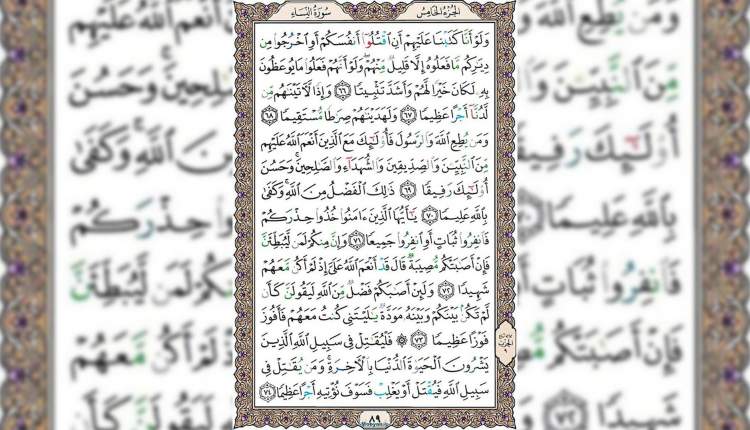 سُورَةُ النِّسَاءِ
الجُزْءُ الخَامِسُ
وَلَوْ أَنَّا كَتَبْنَا عَلَيْهِمْ أَنِ ٱقْتُلُوٓا۟ أَنفُسَكُمْ أَوِ ٱخْرُجُوا۟ مِن
دِيَـٰرِكُم مَّا فَعَلُوهُ إِلَّا قَلِيلٌ مِّنْهُمْ ۖ وَلَوْ أَنَّهُمْ فَعَلُوا۟ مَا يُوعَظُونَ
بِهِۦ لَكَانَ خَيْرًا لَّهُمْ وَأَشَدَّ تَثْبِيتًا ٦٦ وَإِذًا لَّـَٔاتَيْنَـٰهُم مِّن
لَّدُنَّآ أَجْرًا عَظِيمًا ٦٧ وَلَهَدَيْنَـٰهُمْ صِرَٰطًا مُّسْتَقِيمًا ٦٨
وَمَن يُطِعِ ٱللَّهَ وَٱلرَّسُولَ فَأُو۟لَـٰٓئِكَ مَعَ ٱلَّذِينَ أَنْعَمَ ٱللَّهُ عَلَيْهِم
مِّنَ ٱلنَّبِيِّـۧنَ وَٱلصِّدِّيقِينَ وَٱلشُّهَدَآءِ وَٱلصَّـٰلِحِينَ ۚ وَحَسُنَ
أُو۟لَـٰٓئِكَ رَفِيقًا ٦٩ ذَٰلِكَ ٱلْفَضْلُ مِنَ ٱللَّهِ ۚ وَكَفَىٰ
بِٱللَّهِ عَلِيمًا ٧٠ يَـٰٓأَيُّهَا ٱلَّذِينَ ءَامَنُوا۟ خُذُوا۟ حِذْرَكُمْ
فَٱنفِرُوا۟ ثُبَاتٍ أَوِ ٱنفِرُوا۟ جَمِيعًا ٧١ وَإِنَّ مِنكُمْ لَمَن لَّيُبَطِّئَنَّ
فَإِنْ أَصَـٰبَتْكُم مُّصِيبَةٌ قَالَ قَدْ أَنْعَمَ ٱللَّهُ عَلَىَّ إِذْ لَمْ أَكُن مَّعَهُمْ
شَهِيدًا ٧٢ وَلَئِنْ أَصَـٰبَكُمْ فَضْلٌ مِّنَ ٱللَّهِ لَيَقُولَنَّ كَأَن
لَّمْ تَكُنۢ بَيْنَكُمْ وَبَيْنَهُۥ مَوَدَّةٌ يَـٰلَيْتَنِى كُنتُ مَعَهُمْ فَأَفُوزَ
فَوْزًا عَظِيمًا ٧٣ ۞ فَلْيُقَـٰتِلْ فِى سَبِيلِ ٱللَّهِ ٱلَّذِينَ
يَشْرُونَ ٱلْحَيَوٰةَ ٱلدُّنْيَا بِٱلْـَٔاخِرَةِ ۚ وَمَن يُقَـٰتِلْ فِى
سَبِيلِ ٱللَّهِ فَيُقْتَلْ أَوْ يَغْلِبْ فَسَوْفَ نُؤْتِيهِ أَجْرًا عَظِيمًا ٧٤
٨٩